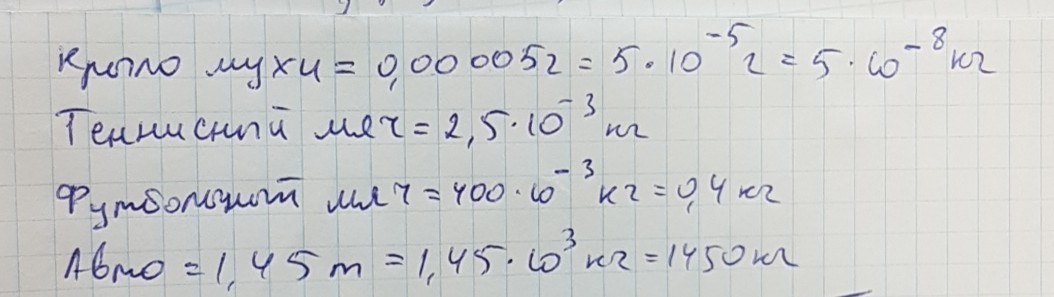 Крыло мухи = 0,00005г = 5·10⁻⁵г = 5·10⁻⁸кг
Теннисный мяч = 2,5·10⁻³кг
Футбольный мяч = 400·10⁻³кг = 0,4кг
Авто = 1,45т = 1,45·10³кг = 1450кг